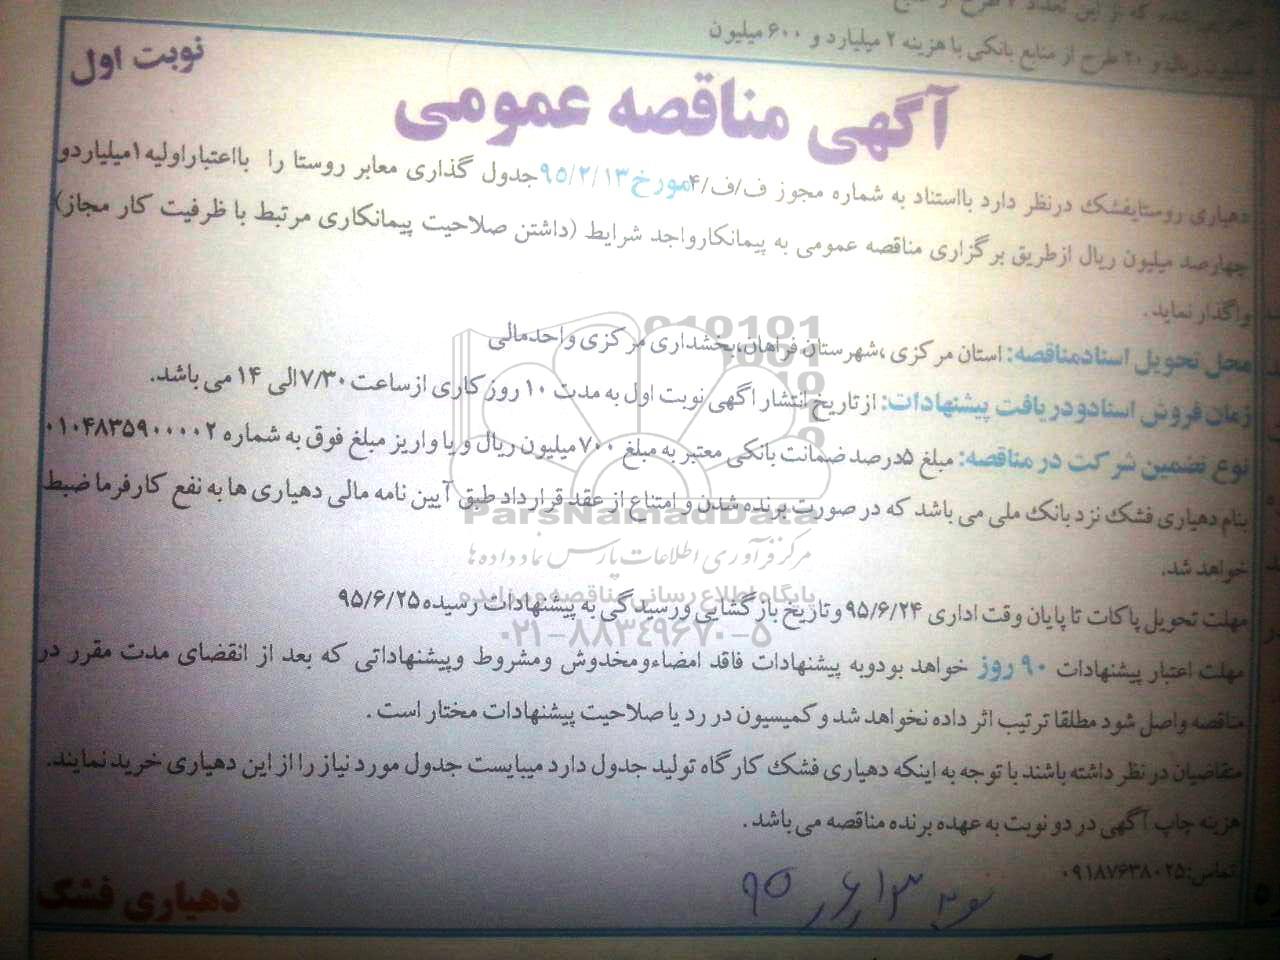 میلیون ریال و ۲۰ طرح از منابع بانکی با هزینه ۲ میلیارد و ۶۰۰ میلیون
نوبت اول
آگهی مناقصه عمومی
دهیاری روستایفشک درنظر دارد بااستناد به شماره مجوز ف/ف/۴مورخ۹۵/۲/۱۳جدول گذاری معابر روستا را بااعتباراولیه۱میلیاردو
چهارصد میلیون ریال ازطریق برگزاری مناقصه عمومی به پیمانکارواجد شرایط (داشتن صلاحیت پیمانکاری مرتبط با ظرفیت کار مجاز)
واگذار نماید.
محل تحویل اسنادمناقصه: استان مرکزی ،شهرستان فراهان،بخشداری مرکزی واحدمالی
زمان فروش اسنادودریافت پیشنهادات: ازتاریخ انتشار اگهی نوبت اول به مدت ۱۰ روزکاری ازساعت ۷/۳۰الی ۱۴ می باشد.
نوع تضمین شرکت در مناقصه: مبلغ ۵درصد ضمانت بانکی معتبر به مبلغ ۷۰۰میلیون ریال و یا واریز مبلغ فوق به شماره ۰۱۰۴۸۳۵۹۰۰۰۰۲
بنام دهیاری فشک نزد بانک ملی می باشد که در صورت برنده شدن و امتناع از عقد قرارداد طبق آیین نامه مالی دهیاری ها به نفع کارفرما ضبط
خواهد شد.
ParsNamadData
مرکز فرآوری اطلاعات پارس نماد داده ها
پایگاه اطلاع رسانی مناقصه و مزایده
مهلت تحویل پاکات تا پایان وقت اداری ۹۵/۶/۲۴ وتاریخ بازگشایی ورسیدگی به پیشنهادات رسیده۹۵/۶/۲۵
۰۲۱-۸۸۳۴۹۶۷۰-۵
مهلت اعتبار پیشنهادات ۹۰ روز خواهد بودوبه پیشنهادات فاقد امضاءومخدوش ومشروط وپیشنهاداتی که بعد از انقضای مدت مقرر در
مناقصه واصل شود مطلقا ترتیب اثر داده نخواهد شد و کمیسیون در رد یا صلاحیت پیشنهادات مختار است .
متقاضیان در نظر داشته باشند با توجه به اینکه دهیاری فشک کارگاه تولید جدول دارد میبایست جدول مورد نیاز را از این دهیاری خریدنمایند.
هزینه چاپ آگهی در دو نوبت به عهده برنده مناقصه می باشد .
تماس:۰۹۱۸۷۶۳۸۰۲۵
دهیاری فشک